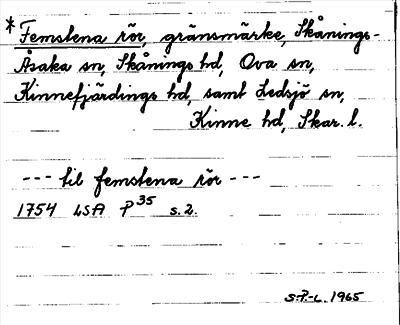 * Femstena rör, gränsmärke, Skånings-
Åsaka sn, Skånings hd, Ova sn,
Kinnefjärdings hd, samt Ledsjö sn,
Kinne hd, Skar. l.
--- til femstena rör ---
1754 LSA P 35 s. 2.
S.P.-L. 1965